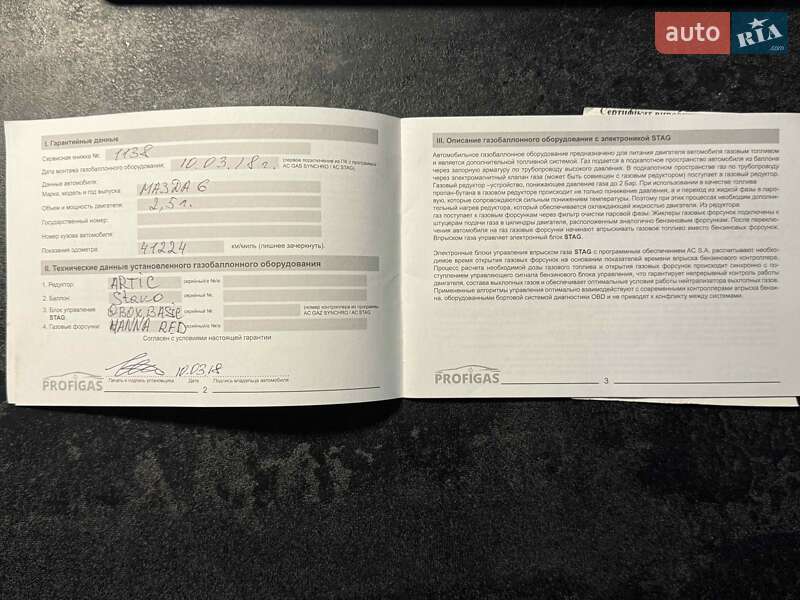 auto RIA .com
I. Гарантийные данные
Сервисная книжка № 1138
Дата монтажа газобаллонного оборудования: 10.03.18г. (первое подключение из ПК с программы AC GAS SYNCHRO / AC STAG)
Данные автомобиля:
Марка, модель и год выпуска: MAЗDA 6
Объем и мощность двигателя: 2,5 л.
Государственный номер:
Номер кузова автомобиля:
Показания одометра: 41224 км/миль (лишнее зачеркнуть).
II. Технические данные установленного газобаллонного оборудования
1. Редуктор: ARTIC серийный №/№
2. Баллон: Stako серийный №
3. Блок управления QBOX BASIC серийный № (номер контроллера из программы
STAG AC GAZ SYNCHRO / AC STAG
4. Газовые форсунки: HANNA RED серийный/е №/№
Согласен с условиями настоящей гарантии
10.03.18
Печать и подпись установщика Дата Подпись владельца автомобиля
PROFIGAS
2
Сертифікат
III. Описание газобаллонного оборудования с электроникой STAG
Автомобильное газобаллонное оборудование предназначено для питания двигателя автомобиля газовым топливом
и является дополнительной топливной системой. Газ подается в подкапотное пространство автомобиля из баллона
через запорную арматуру по трубопроводу высокого давления. В подкапотном пространстве газ по трубопроводу
через электромагнитный клапан газа (может быть совмещен с газовым редуктором) поступает в газовый редуктор.
Газовый редуктор - устройство, понижающее давление газа до 2 Бар. При использовании в качестве топлива
пропан-бутана в газовом редукторе происходит не только понижение давления, и переход из жидкой фазы в паро-
вую, которые сопровождаются сильным понижением температуры. Поэтому при этом процессе необходим дополни-
тельный нагрев редуктора, который обеспечивается охлаждающей жидкостью двигателя. Из редуктора
газ поступает к газовым форсункам через фильтр очистки паровой фазы. Жиклеры газовых форсунок подключены к
штуцерам подачи газа в цилиндры двигателя, расположенным аналогично бензиновым форсункам. После переклю-
чения автомобиля на газ газовые форсунки начинают впрыскивать газовое топливо вместо бензиновых форсунок.
Впрыском газа управляет электронный блок STAG.
Электронные блоки управления впрыском газа STAG с программным обеспечением AC S.A. рассчитывают необхо-
димое время открытия газовых форсунок на основании показаний времени впрыска бензинового контроллера.
Процесс расчета необходимой дозы газового топлива и открытия газовых форсунок происходит синхронно с по-
ступлением управляющего сигнала бензинового блока управления, что гарантирует непрерывный контроль работы
двигателя, состава выхлопных газов и обеспечивает оптимальные условия работы нейтрализатора выхлопных газов.
Примененные алгоритмы управления оптимально взаимодействуют с современными контроллерами впрыска бензи-
на, оборудованными бортовой системой диагностики OBD и не приводят к конфликту между системами.
PROFIGAS
3